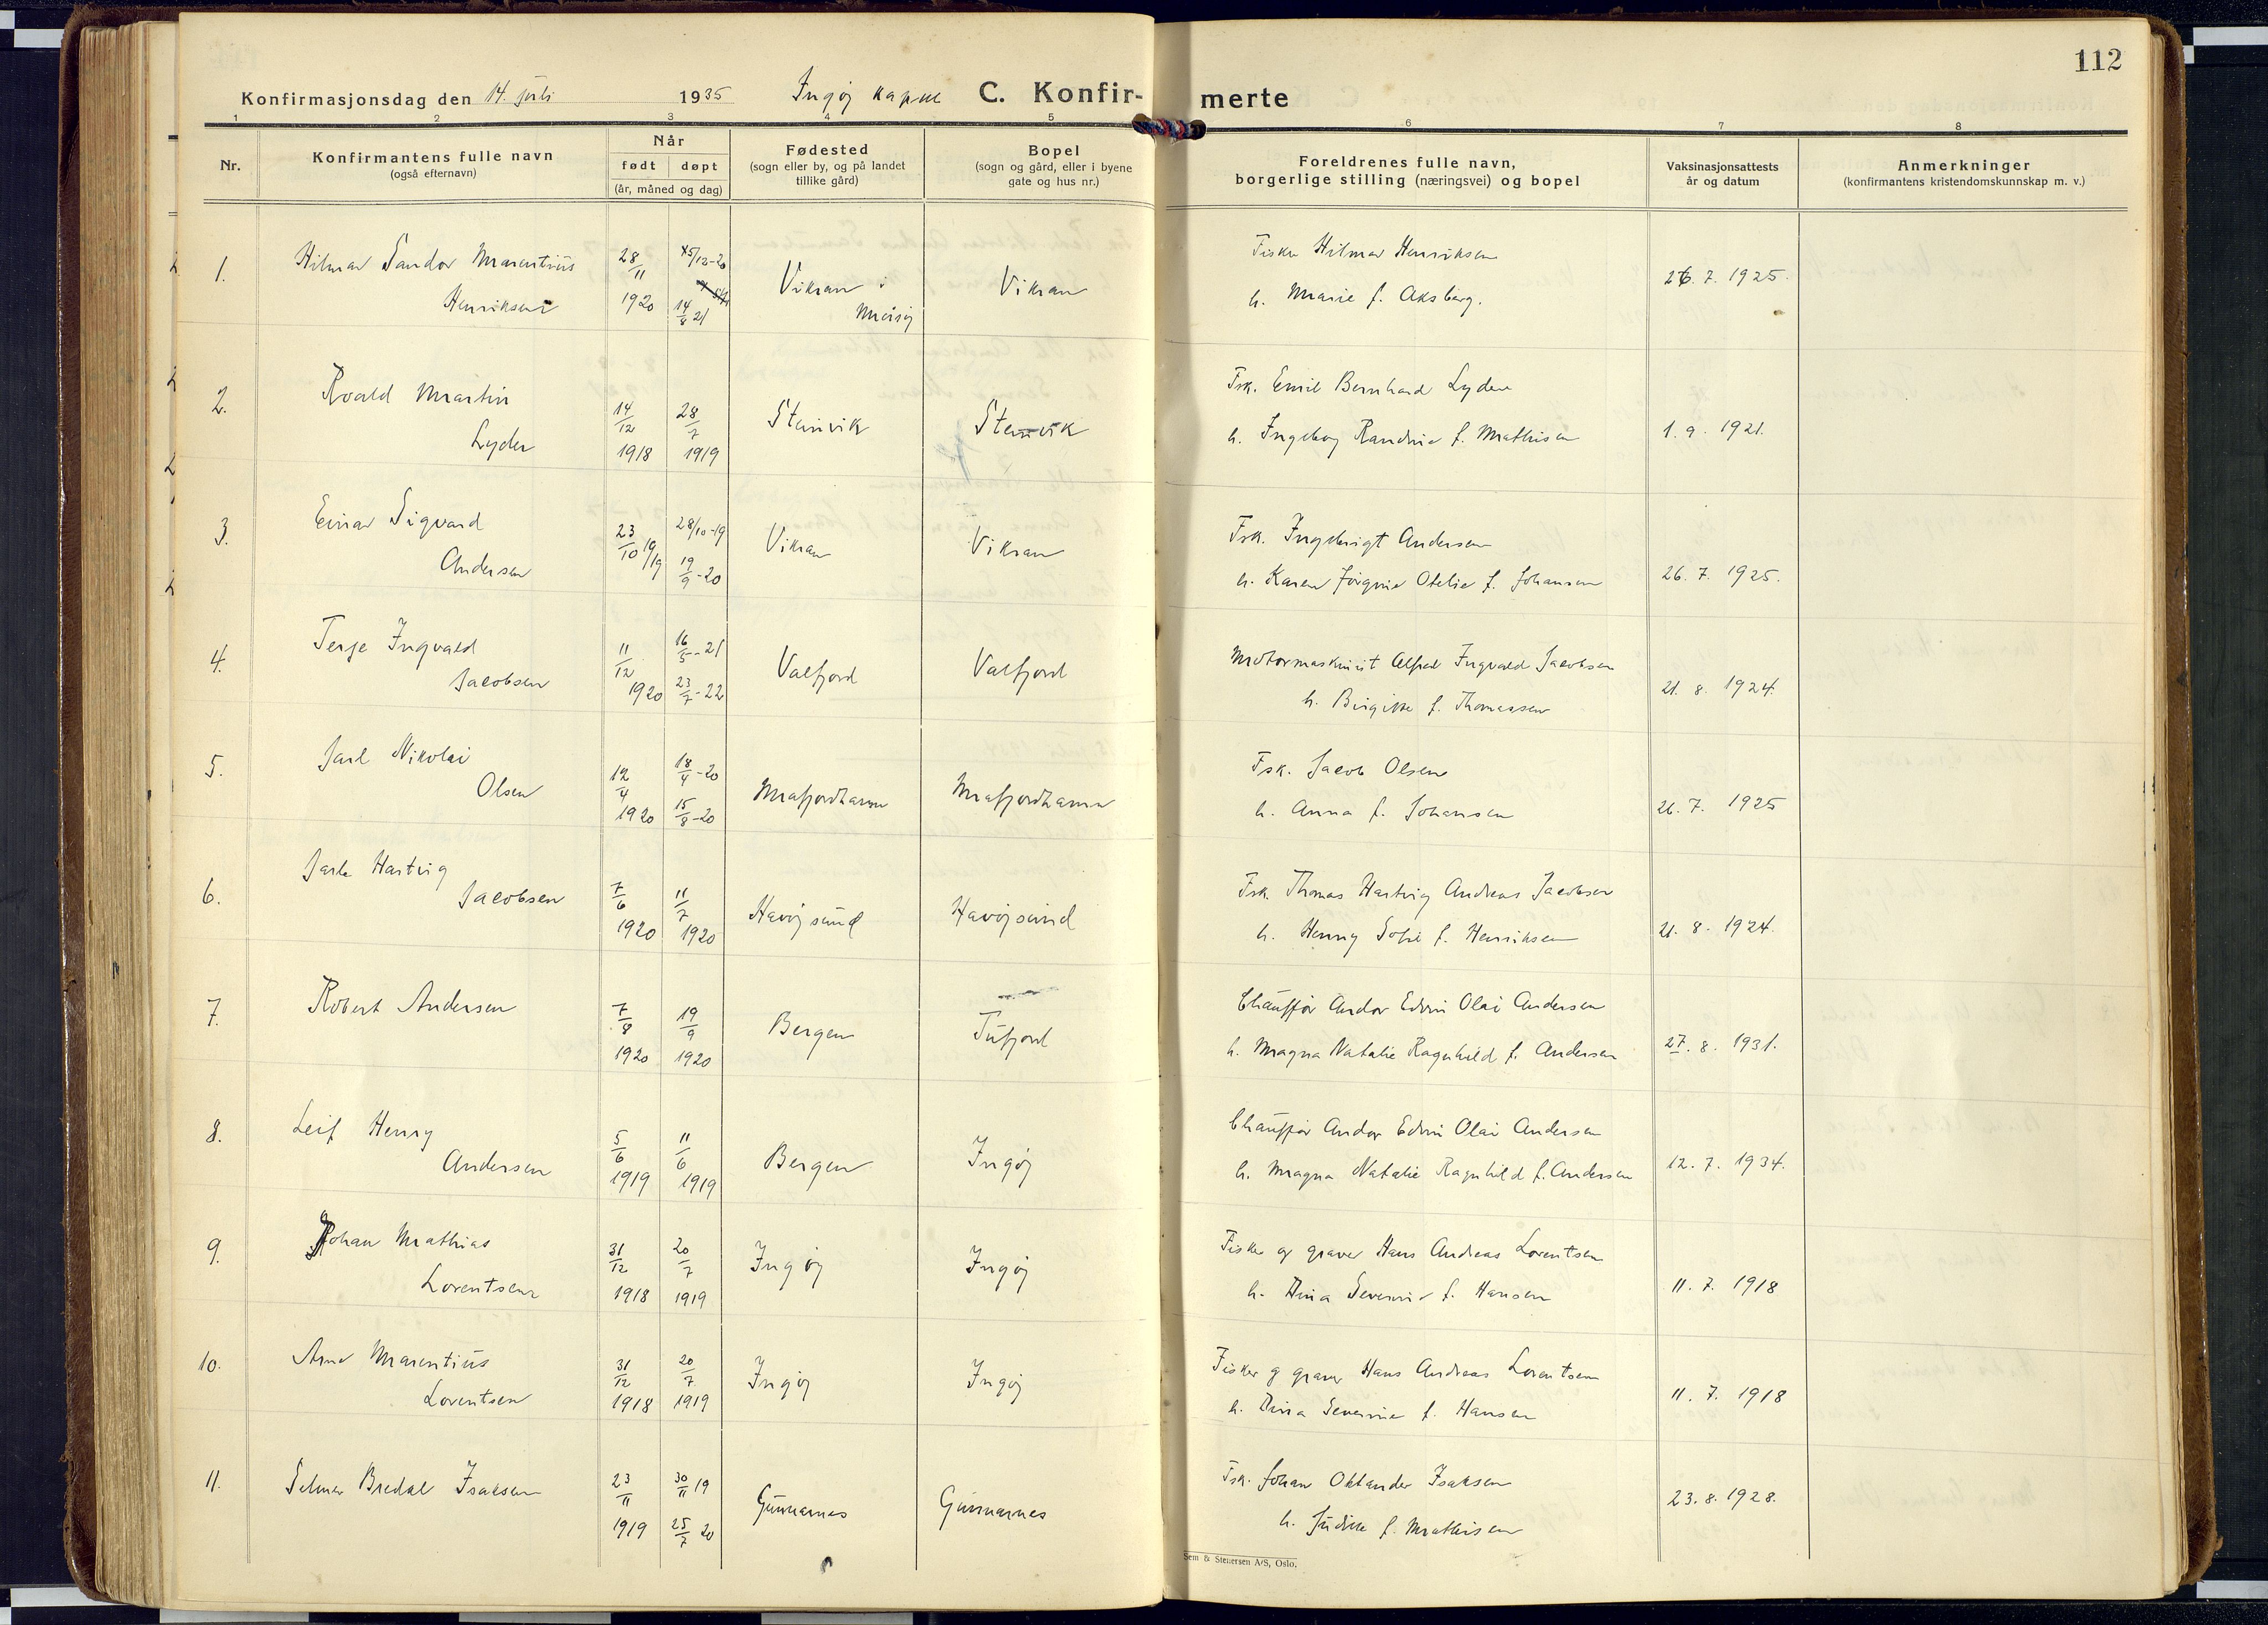 112
Konfirmasjonsdag den 14. juli 1935 Ingøy kapell C. Konfirmerte
1 2 3 4 5 6 7 8
Nr.
Konfirmantens fulle navn
(også efternavn)
Når
født døpt
(år, måned og dag)
Fødested
(sogn eller by, og på landet
tillike gård)
Bopel
(sogn og gård, eller i byene
gate og hus nr.)
Foreldrenes fulle navn,
borgerlige stilling (næringsvei) og bopel
Vaksinasjonsattests
år og datum
Anmerkninger
(konfirmantens kristendomskunnskap m. v.)
1. Hilmar Sandor Marentius 28/11 15/12-20 Vikran i Vikran Fisker Hilmar Henriksen 26. 7. 1925.
Henriksen 1920 14/8 21 Måsøy h. Marie f. Aksberg.
2. Roald Martin 14/12 28/7 Steinvik Steinvik Fsk. Emil Bernhard Lyder 1. 9. 1921.
Lyder 1918 1919 h. Ingeborg Randine f. Mathisen
3. Einar Sigvard 23/10 19/19 28/10-19 Vikran Vikran Fsk. Ingebrigt Andersen 26. 7. 1925.
Andersen 19/9-20 h. Karen Jørgine Otelie f. Johansen
4. Terje Ingvald 11/12 16/5-21 Valfjord Valfjord Motormaskinist Alfred Ingvald Jacobsen 21. 8. 1924.
Jacobsen 1920 23/7-22 h. Birgitte f. Thomassen
5. Jarl Nikolai 12/4 18/4-20 Mafjordhamn Mafjordhamn Fsk. Jacob Olsen 26. 7. 1925
Olsen 1920 15/8-20 h. Anna f. Johansen
6. Jarle Hartvig 7/6 11/7 Havøysund Havøysund Fsk. Thomas Hartvig Andreas Jacobsen 21. 8. 1924.
Jacobsen 1920 1920 h. Henny Sofie f. Henriksen
7. Robert Andersen 7/8 19/9 Bergen Tufjord Chauffør Andor Edvin Olai Andersen 27. 8. 1931.
1920 1920 h. Magna Natalie Ragnhild f. Andersen
8. Leif Henry 5/6 11/6 Bergen Ingøy Chauffør Andor Edvin Olai Andersen 12. 7. 1934.
Andersen 1919 1919 h. Magna Natalie Ragnhild f. Andersen
9. Johan Mathias 31/12 20/7 Ingøy Ingøy Fisker og graver Hans Andreas Lorentsen 11. 7. 1918
Lorentsen 1918 1919 h. Dina Severine f. Hansen
10. Arne Marentius 31/12 20/7 Ingøy Ingøy Fisker og graver Hans Andreas Lorentsen 11. 7. 1918
Lorentsen 1918 1919 h. Dina Severine f. Hansen
11. Selmer Bredal Isaksen 23/11 30/11 19 Gunnarnes Gunnarnes Fsk. Johan Oktander Isaksen 23. 8. 1928.
1919 25/7 20 h. Judith f. Mathisen
Sem & Stenersen A/S, Oslo.